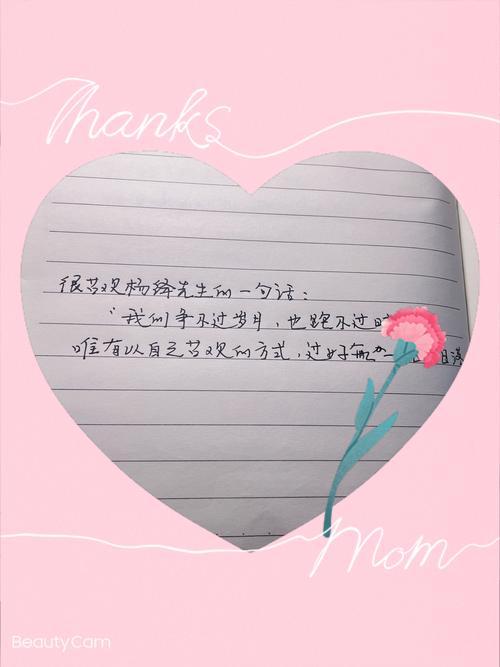 Thanks
很喜欢杨绛先生的一句话：
“我们争不过岁月，也跑不过时
唯有以自己喜欢的方式，过好每一
日落
Mom
BeautyCam